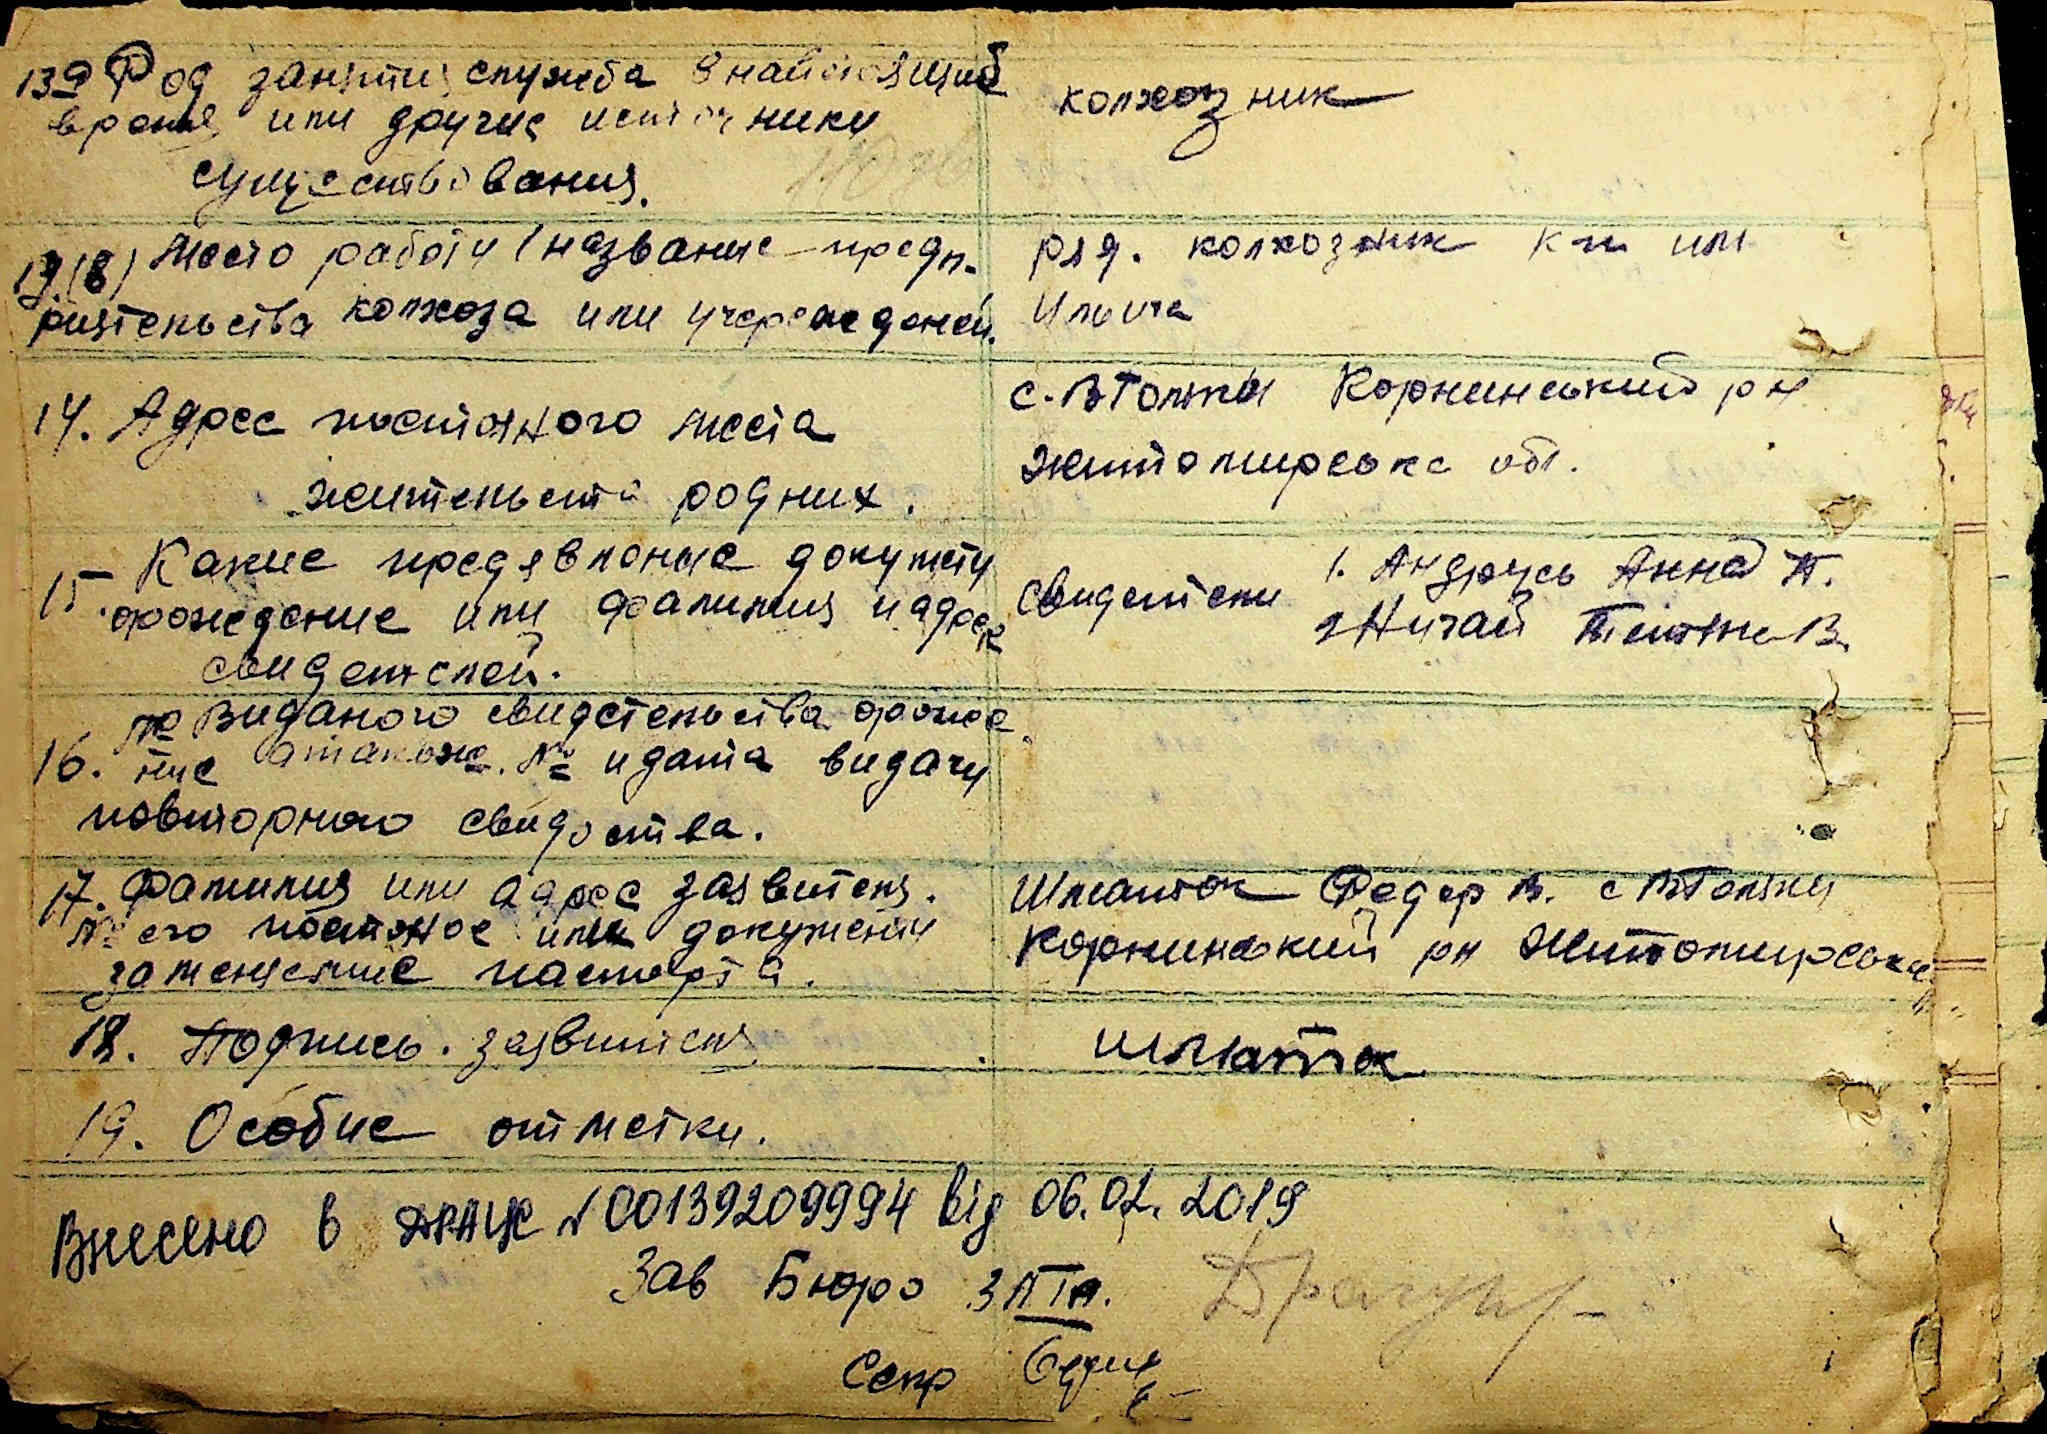 13а Род занятия служба в найстоящие
время или другие источники
существования.
колхозник
13(в) Место работи (название предп-
риятельства колхоза или учережденей.
ряд. колхозник к-п им
Ильича
14. Адрес постояного места
жительста родних.
с. Корнинський рн
Житомирська обл.
15. Какие предявленые докумети
орождение или фамилия и адрес
свидетелей.
свидетели 1. Андрусь Анна П.
2 Ничай В.
16. № Виданого свидетельства орожде
ние атакож. № и дата видачи
повторного свидоства.
17. Фамилия или адрес заявителя.
№ его постоное или документи
заменяемие паспорта.
Шматок Федер В. с
Корнинський рн Житомирська
18. Подпись. заявителя.
Шматок
19. Особие отметки.
Внесено в ДРАЦС N 00139209994 від 06.02.2019
Зав Бюро ЗАГСа.
Секр